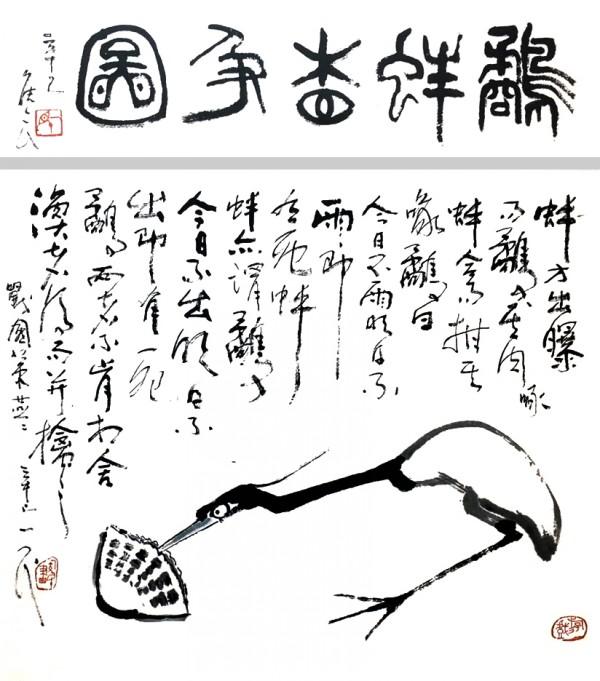 鷸蚌相爭圖
蚌方出曝
而鷸啄其肉
蚌合而拑其
喙鷸曰
今日不雨明日不
雨即
有死蚌
蚌亦謂鷸曰
今日不出明日不
出即有死
鷸兩者不肯相舍
漁者得而并擒之
戰國策燕二